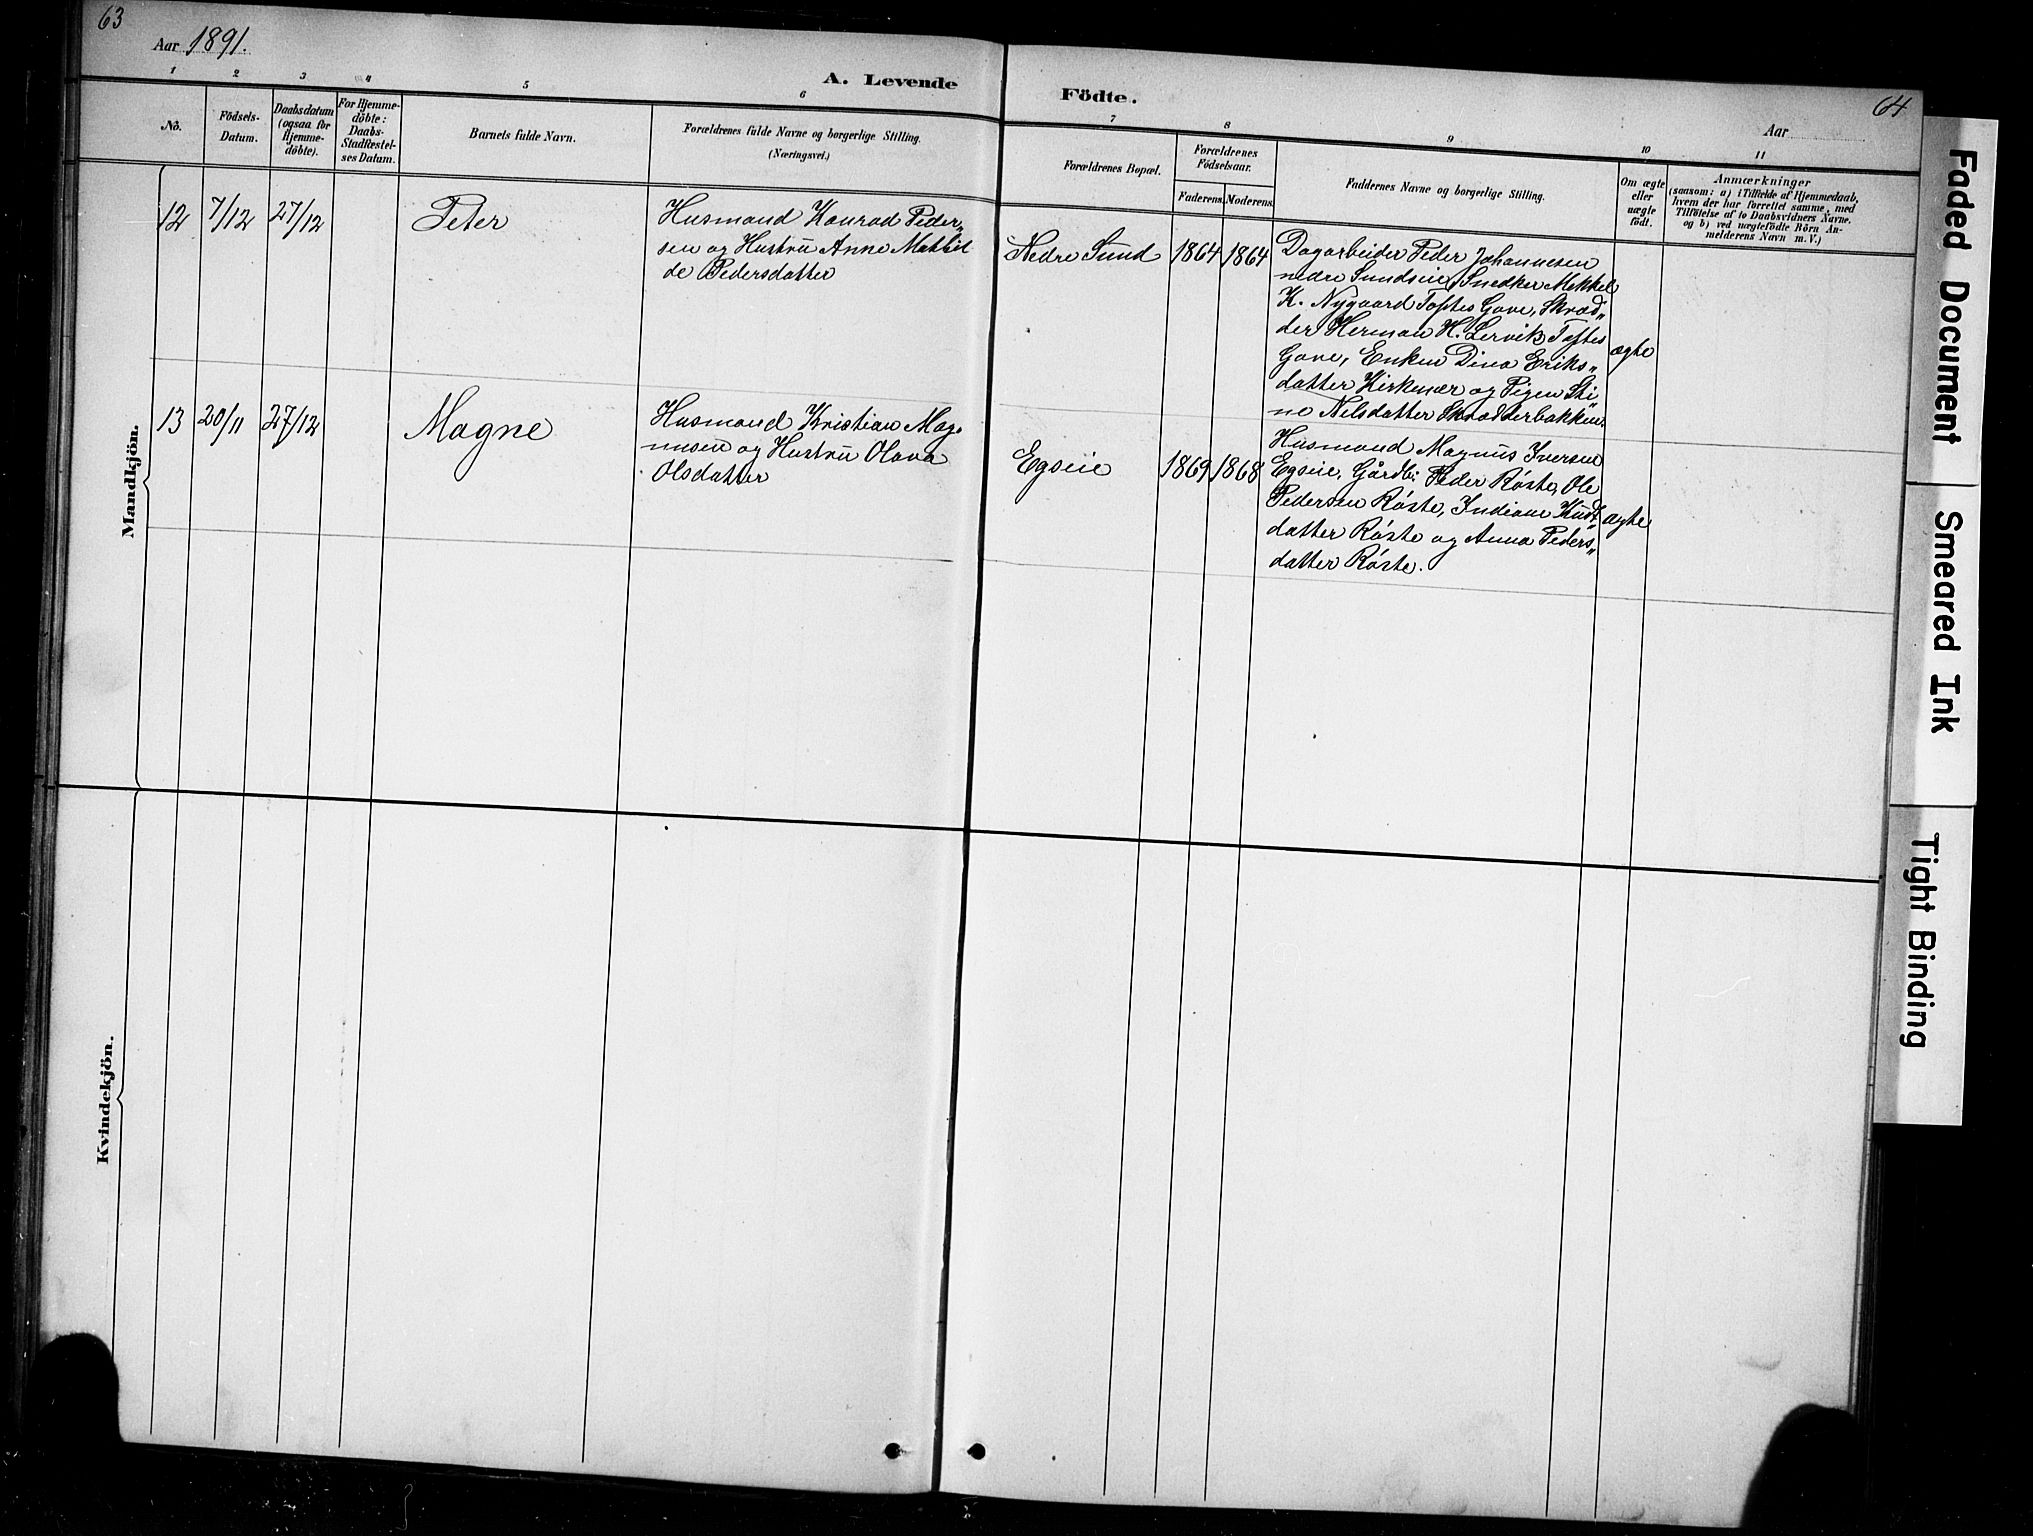 63
Aar 1891.
A. Levende
1 2 3 4 5 6
Nô.
Födsels-
Datum.
Daabsdatum
(ogsaa for
Hjemme-
döbte).
For Hjemme-
döbte:
Daabs-
Stadfæstel-
ses Datum.
Barnets fulde Navn.
Forældrenes fulde Navne og borgerlige Stilling.
(Næringsvei.)
Mandkjön.
12 7/12 27/12 Peter
Husmand Konrad Peder„
sen og Hustru Anne Mathil
de Pedersdatter
13 20/11 27/12 Magne
Husmand Kristian Mag„
nusen og Hustru Olava
Olsdatter
Kvindekjön.
Födte.
64
Aar
7 8 9 10 11
Forældrenes Bopæl.
Forældrenes
Födselsaar.
Faderens. Moderens.
Faddernes Navne og borgerlige Stilling.
Om ægte
eller
uægte
födt.
Anmærkninger
(saasom: a) i Tilfælde af Hjemmedaab,
hvem der har forrettet samme, med
Tilföielse af to Daabsvidners Navne.
og b) ved uægtefödte Börn An-
melderens Navn m. V.)
Nedre Sund 1864 1864
Dagarbeider Peder Johannesen
nedre Sundseie, Snedker Mekkel
K. Nygaard Toftes Gave, Skræd„
der Herman H. Lervik Toftes
Gave, Enken Dina Eriks„
datter Kirkenær og Pigen Sti„
ne Nilsdatter Skrædderbakken.
ægte
Egseie 1869 1868
Husmand Magnus Iversen
Egseie, Gårdb. Peder Røste, Ole
Pedersen Røste, Indiane
datter Røste og Anna Peders„
datter Røste.
ægte
Faded Document
Smeared Ink
Tight Binding